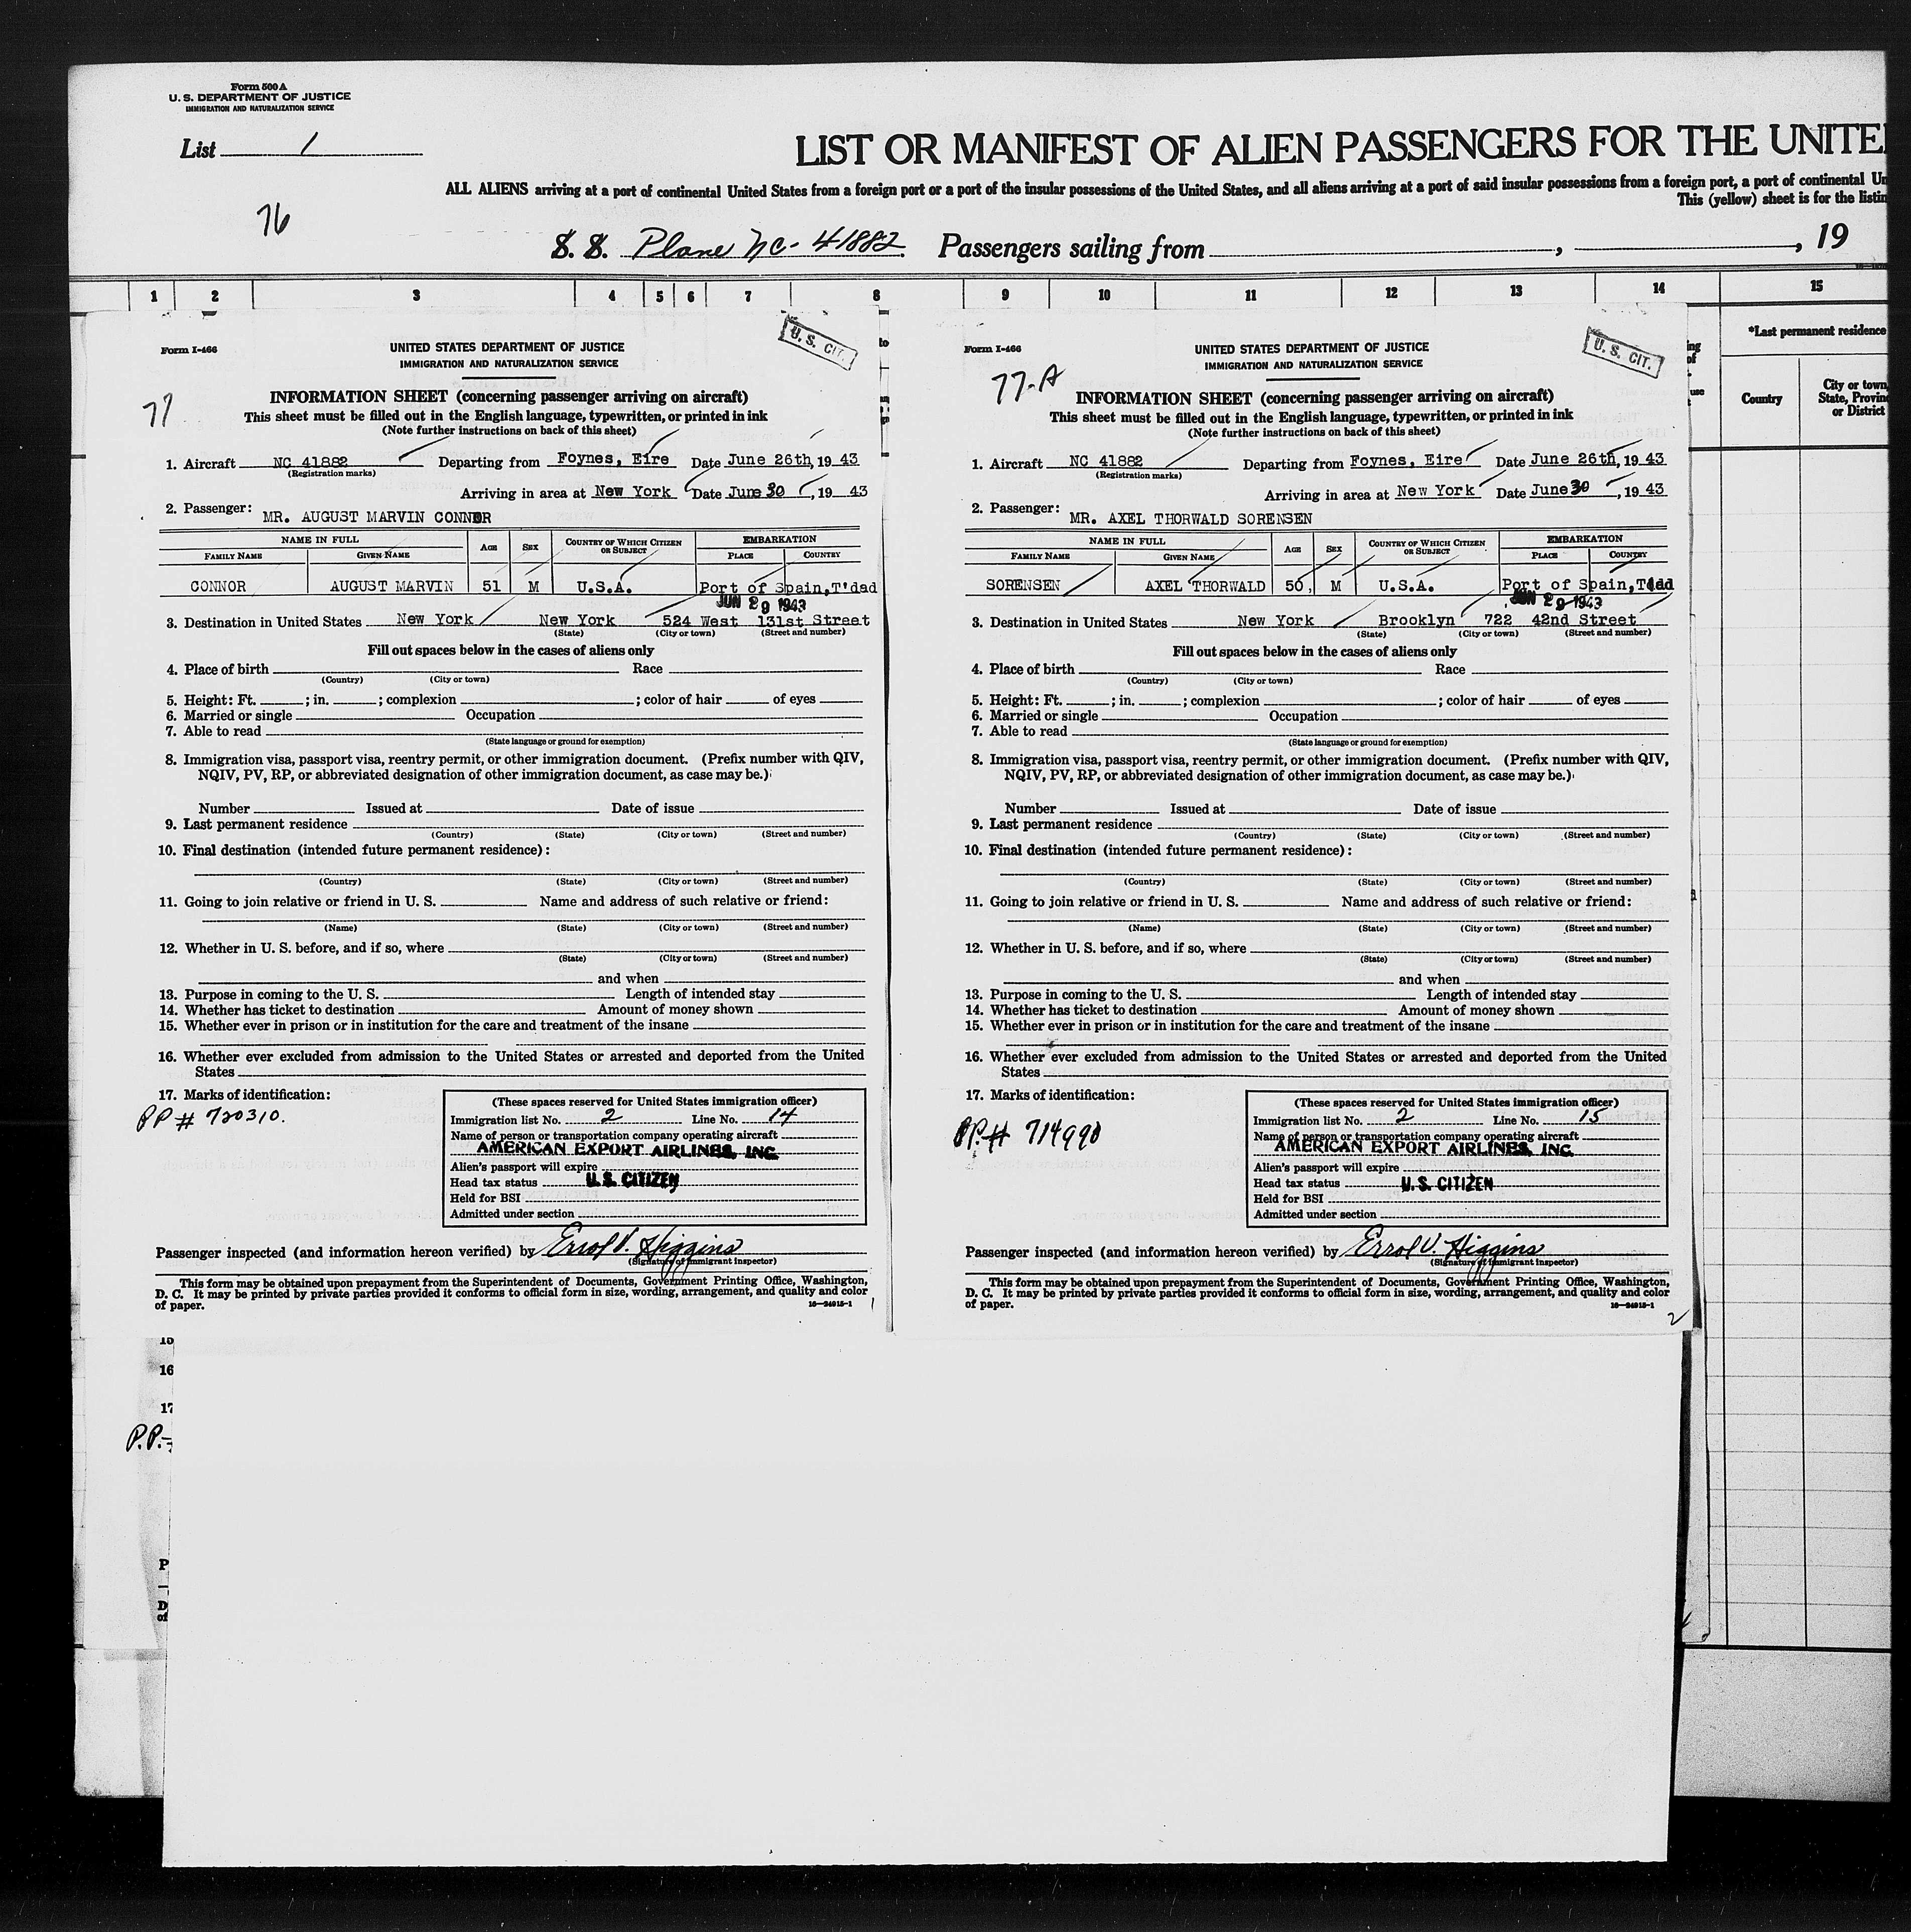 Form 500 A
U. S. DEPARTMENT OF JUSTICE
IMMIGRATION AND NATURALIZATION SERVICE
List 1
LIST OR MANIFEST OF ALIEN PASSENGERS FOR THE UNITE
ALL ALIENS arriving at a port of continental United States from a foreign port or a port of the insular possessions of the United States, and all aliens arriving at a port of said insular possessions from a foreign port, a port of continental Un
This (yellow) sheet is for the listin
76
S. S. Plane NC-41882 Passengers sailing from , , 19
1 2 3 4 5 6 7 8 9 10 11 12 13 14 15
*Last permanent residence
Country
City or town,
State, Provinc
or District
Form I-466
UNITED STATES DEPARTMENT OF JUSTICE
IMMIGRATION AND NATURALIZATION SERVICE
U. S. CIT.
77
INFORMATION SHEET (concerning passenger arriving on aircraft)
This sheet must be filled out in the English language, typewritten, or printed in ink
(Note further instructions on back of this sheet)
1. Aircraft NC 41882 Departing from Foynes, Eire Date June 26th, 19 43
(Registration marks)
Arriving in area at New York Date June 30, 19 43
2. Passenger: MR. AUGUST MARVIN CONNOR
NAME IN FULL AGE SEX COUNTRY OF WHICH CITIZEN OR SUBJECT EMBARKATION
FAMILY NAME GIVEN NAME PLACE COUNTRY
CONNOR AUGUST MARVIN 51 M U.S.A. Port of Spain,T'dad
JUN 29 1943
3. Destination in United States New York New York 524 West 131st Street
(State) (City or town) (Street and number)
Fill out spaces below in the cases of aliens only
4. Place of birth Race
(Country) (City or town)
5. Height: Ft. ; in. ; complexion ; color of hair of eyes
6. Married or single Occupation
7. Able to read
(State language or ground for exemption)
8. Immigration visa, passport visa, reentry permit, or other immigration document. (Prefix number with QIV,
NQIV, PV, RP, or abbreviated designation of other immigration document, as case may be.)
Number Issued at Date of issue
9. Last permanent residence
(Country) (State) (City or town) (Street and number)
10. Final destination (intended future permanent residence):
(Country) (State) (City or town) (Street and number)
11. Going to join relative or friend in U. S. Name and address of such relative or friend:
(Name) (State) (City or town) (Street and number)
12. Whether in U. S. before, and if so, where
(State) (City or town) (Street and number)
and when
13. Purpose in coming to the U. S. Length of intended stay
14. Whether has ticket to destination Amount of money shown
15. Whether ever in prison or in institution for the care and treatment of the insane
16. Whether ever excluded from admission to the United States or arrested and deported from the United
States
17. Marks of identification:
PP # 720310.
(These spaces reserved for United States immigration officer)
Immigration list No. 2 Line No. 14
Name of person or transportation company operating aircraft
AMERICAN EXPORT AIRLINES, INC.
Alien's passport will expire
Head tax status U.S. CITIZEN
Held for BSI
Admitted under section
Passenger inspected (and information hereon verified) by Errol V. Higgins
(Signature of immigrant inspector)
This form may be obtained upon prepayment from the Superintendent of Documents, Government Printing Office, Washington,
D. C. It may be printed by private parties provided it conforms to official form in size, wording, arrangement, and quality and color
of paper. 16—24915-1
1
Form I-466
UNITED STATES DEPARTMENT OF JUSTICE
IMMIGRATION AND NATURALIZATION SERVICE
U. S. CIT.
77-A
INFORMATION SHEET (concerning passenger arriving on aircraft)
This sheet must be filled out in the English language, typewritten, or printed in ink
(Note further instructions on back of this sheet)
1. Aircraft NC 41882 Departing from Foynes, Eire Date June 26th, 19 43
(Registration marks)
Arriving in area at New York Date June 30, 19 43
2. Passenger: MR. AXEL THORWALD SORENSEN
NAME IN FULL AGE SEX COUNTRY OF WHICH CITIZEN OR SUBJECT EMBARKATION
FAMILY NAME GIVEN NAME PLACE COUNTRY
SORENSEN AXEL THORWALD 50 M U.S.A. Port of Spain,T'dad
JUN 29 1943
3. Destination in United States New York Brooklyn 722 42nd Street
(State) (City or town) (Street and number)
Fill out spaces below in the cases of aliens only
4. Place of birth Race
(Country) (City or town)
5. Height: Ft. ; in. ; complexion ; color of hair of eyes
6. Married or single Occupation
7. Able to read
(State language or ground for exemption)
8. Immigration visa, passport visa, reentry permit, or other immigration document. (Prefix number with QIV,
NQIV, PV, RP, or abbreviated designation of other immigration document, as case may be.)
Number Issued at Date of issue
9. Last permanent residence
(Country) (State) (City or town) (Street and number)
10. Final destination (intended future permanent residence):
(Country) (State) (City or town) (Street and number)
11. Going to join relative or friend in U. S. Name and address of such relative or friend:
(Name) (State) (City or town) (Street and number)
12. Whether in U. S. before, and if so, where
(State) (City or town) (Street and number)
and when
13. Purpose in coming to the U. S. Length of intended stay
14. Whether has ticket to destination Amount of money shown
15. Whether ever in prison or in institution for the care and treatment of the insane
16. Whether ever excluded from admission to the United States or arrested and deported from the United
States
17. Marks of identification:
PP.# 714990
(These spaces reserved for United States immigration officer)
Immigration list No. 2 Line No. 15
Name of person or transportation company operating aircraft
AMERICAN EXPORT AIRLINES, INC.
Alien's passport will expire
Head tax status U.S. CITIZEN
Held for BSI
Admitted under section
Passenger inspected (and information hereon verified) by Errol V. Higgins
(Signature of immigrant inspector)
This form may be obtained upon prepayment from the Superintendent of Documents, Government Printing Office, Washington,
D. C. It may be printed by private parties provided it conforms to official form in size, wording, arrangement, and quality and color
of paper. 16—24915-1
2
15
16
17
P.P.
P
D
of